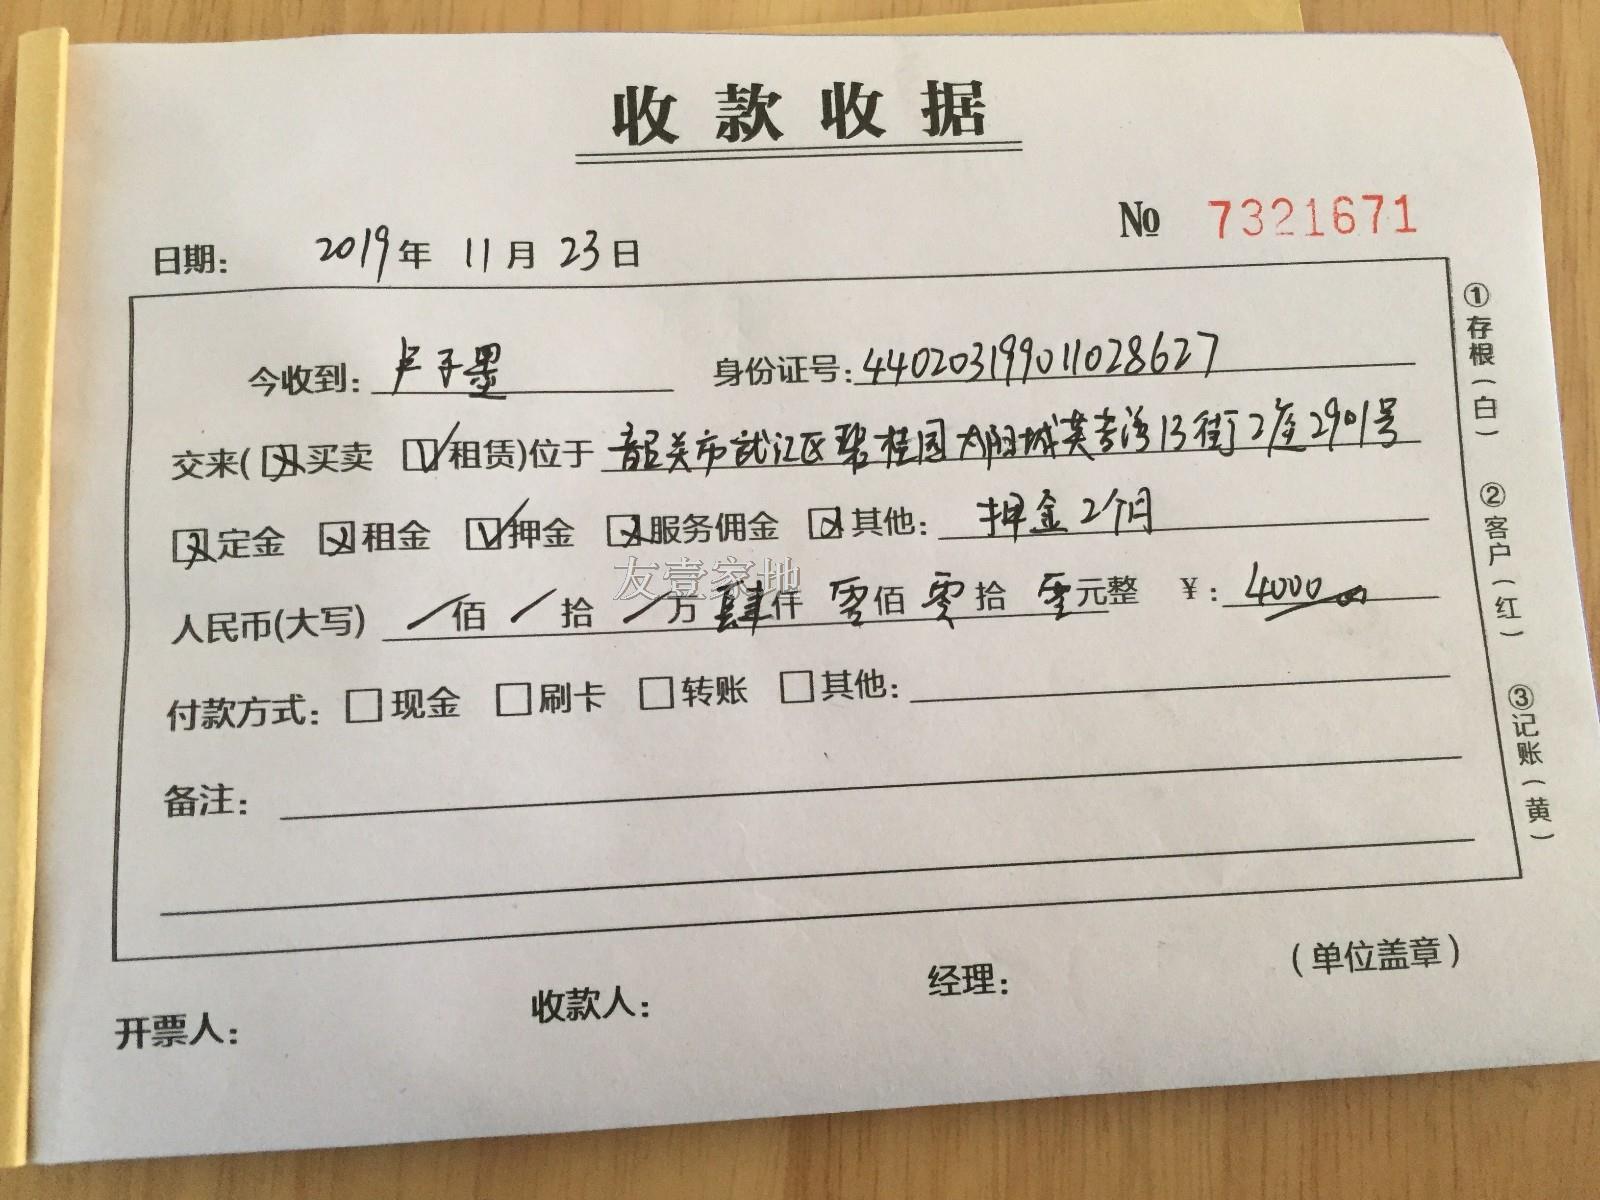 收款收据
№ 7321671
日期： 2019年 11月 23日
今收到：卢子墨 身份证号：440203199011028627
交来(☒买卖 ☑租赁)位于 韶关市武江区碧桂园太阳城芙蓉湾13街2座2901号
☒定金 ☒租金 ☑押金 ☒服务佣金 ☒其他：押金2个月
人民币(大写) /佰 /拾 /万 肆仟 零佰 零拾 零元整 ￥：4000.00
付款方式：□现金 □刷卡 □转账 □其他：
备注：
开票人： 收款人： 经理： （单位盖章）
①存根（白） ②客户（红） ③记账（黄）
友壹家地